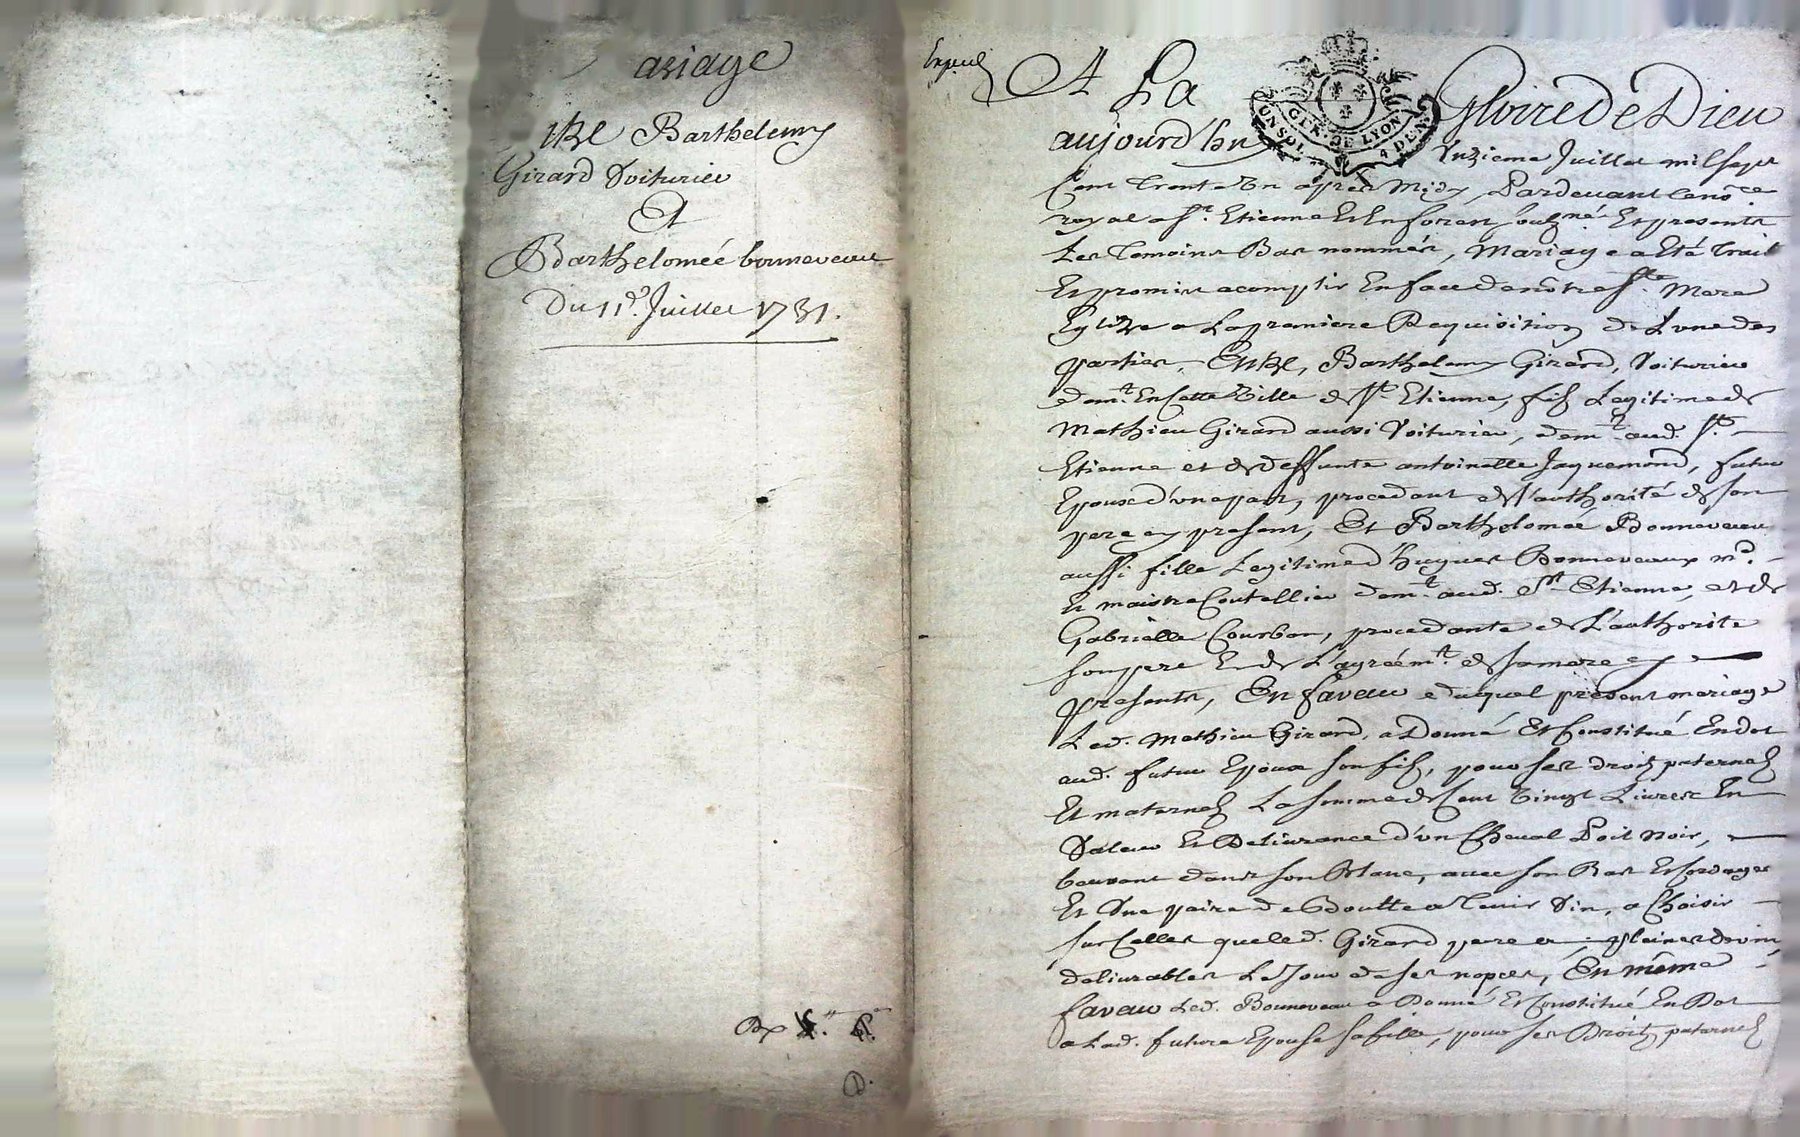 ariage
Barthelemy
Girard Voiturier
Et
Barthelomée bonneveau
Du 11e. Juillet 1731.
A La Gloire De Dieu
GEN. DE LYON
UN SOL 4 DEN.
aujourd'huy Unzieme Juillet mil sept
Cent Trente Un apres Midy, Pardevant le no.re
royal a St. Etienne Et En forez sousgné Et presents
Les Temoins Bas nommés, Mariage a Eté Trait
Et promis acomplir En face de nôtre Ste. Mere
Eglize a La premiere Requisition de L'une des
parties, Entre, Barthelemy Girard, Voiturier
demt. En Cette Ville de St. Etienne, fils Legitime de
Mathieu Girard aussi Voiturier, demt. aud. St.
Etienne et de deffunte antoinette Jaquemond, futur
Epoux d'une part, procedant de l'authorité de son
pere cy present, Et Barthelomée Bonneveau
aussi fille Legitime d'hugues Bonneveaux md.
Et maistre Coutellier demt. aud. St. Etienne, et de
Gabrielle Courbon, procedante de L'authorité
son pere Et de L'agréemt. de sa mere cy
presents, En faveur duquel present mariage
Led. Mathieu Girard, a Donné Et Constitué En dot
aud. futur Epoux son fils, pour ses droits paternels
Et maternels La somme de Cent Vingt Livres En
Valeur Et Delivrance d'un Cheval Poil Noir,
beuvant dans son blanc, avec son Bas Et Cordages
Et Une paire de Boutte a Tenir Vin, a Choisir
sur Celles que led. Girard pere a, pleines de vin,
delivrables Le Jour de ses nopces, En même
faveur Led. Bonneveau a Donné Et Constitué En Dot
a Lad. future Epouse sa fille, pour ses Droits paternels